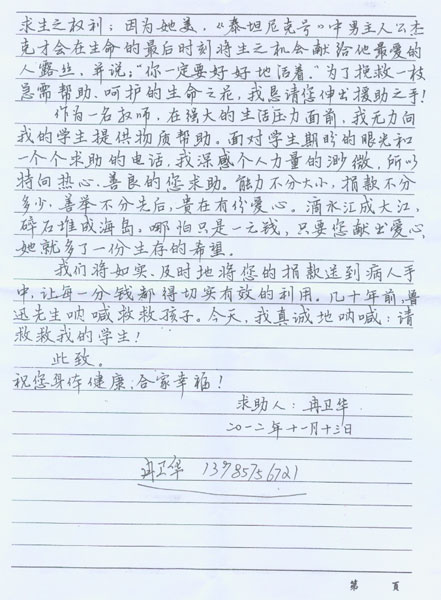 求生之权利；因为她美，《泰坦尼克号》中男主人公杰
克才会在生命的最后时刻将生之机会献给他最爱的
人露丝，并说："你一定要好好地活着。"为了挽救一枝
急需帮助、呵护的生命之花，我恳请您伸出援助之手！
作为一名教师，在强大的生活压力面前，我无力向
我的学生提供物质帮助。面对学生期盼的眼光和
一个个求助的电话，我深感个人力量的渺微，所以
特向热心、善良的您求助。能力不分大小，捐款不分
多少，善举不分先后，贵在有份爱心。滴水汇成大江，
碎石堆成海岛，哪怕只是一元钱，只要您献出爱心，
她就多了一份生存的希望。
我们将如实、及时地将您的捐款送到病人手
中，让每一分钱都得切实有效的利用。几十年前，鲁
迅先生呐喊救救孩子。今天，我真诚地呐喊：请
救救我的学生！
此致。
祝您身体健康，合家幸福！
求助人：冉卫华
二〇一二年十一月十三日
冉卫华 13785756721
第 页